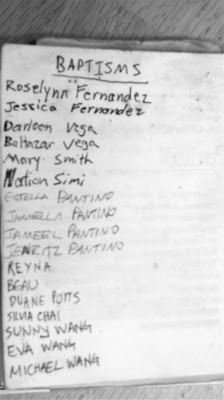 BAPTISMS
Roselynn Fernandez
Jessica Fernandez
Darleen Vega
Baltazar Vega
Mary Smith
Nation Simi
ESTELLA PANTINO
JANNELLA PANTINO
JAMEEL PANTINO
JENRITZ PANTINO
REYNA
BEAU
DUANE POTTS
SILVIA CHAI
SUNNY WANG
EVA WANG
MICHAEL WANG